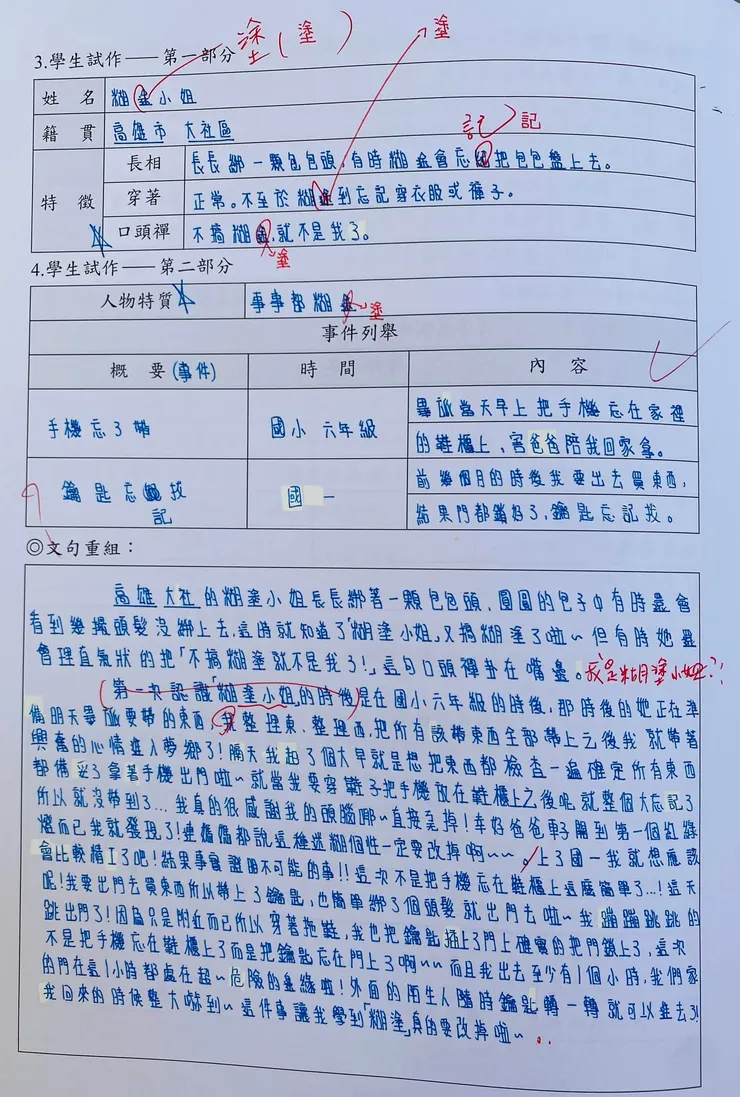 塗(塗)
塗
3.學生試作——第一部分
姓 名 糊塗小姐
籍 貫 高雄市 大社區
記 記
特 徵
長相 長長綁一顆包包頭,有時糊塗會忘記把包包盤上去。
穿著 正常。不至於糊塗到忘記穿衣服或褲子。
口頭禪 不搞糊塗,就不是我了。
塗
4.學生試作——第二部分
人物特質 事事都糊塗 塗
事件列舉
概 要(事件) 時 間 內 容
手機忘了帶 國小 六年級 畢旅當天早上把手機忘在家裡
的鞋櫃上,害爸爸陪我回家拿。
鑰匙忘記拔 國一 前幾個月的時後我要出去買東西,
結果門都鎖好了,鑰匙忘記拔。
◎文句重組:
高雄大社的糊塗小姐長長綁著一顆包包頭,圓圓的包子中有時還會
看到幾撮頭髮沒綁上去,這時就知道了「糊塗小姐,又搞糊塗了啦~但有時她還
會理直氣狀的把「不搞糊塗就不是我了!」這句口頭禪卦在嘴邊。我是糊塗小姐?!
(第一次認識「糊塗小姐」的時後)是在國小六年級的時後,那時後的她正在準
備明天畢旅要帶的東西,我整理東、整理西,把所有該帶東西全部帶上之後我就帶著
興奮的心情進入夢鄉了!隔天我起了個大早就是想把東西都檢查一遍確定所有東西
都備妥了拿著手機出門啦~就當我要穿鞋子把手機放在鞋櫃上之後呢就整個大忘記了
所以就沒帶到了...我真的很感謝我的頭腦耶~直接忘掉!幸好爸爸車子開到第一個紅綠
燈而已我就發現了!連媽媽都說這種迷糊個性一定要改掉啊~~。上了國一我就想應該
會比較精工了吧!結果事實證明不可能的事!!這次不是把手機忘在鞋櫃上這麼簡單了...!這天
呢!我要出門去買東西所以帶上了鑰匙,也簡單綁了個頭髮就出門去啦~我蹦蹦跳跳的
跳出門了!因為只是附近而已所以穿著拖鞋,我也把鑰匙插上了門上確實的把門鎖上了,這次
不是把手機忘在鞋櫃上了而是把鑰匙忘在門上了啊~~而且我出去至少有1個小時,我們家
的門在這1小時都處在超~危險的邊緣啦!外面的陌生人隨時鑰匙轉一轉就可以進去了!
我回來的時候整大嚇到~這件事讓我學到「糊塗」真的要改掉啦~